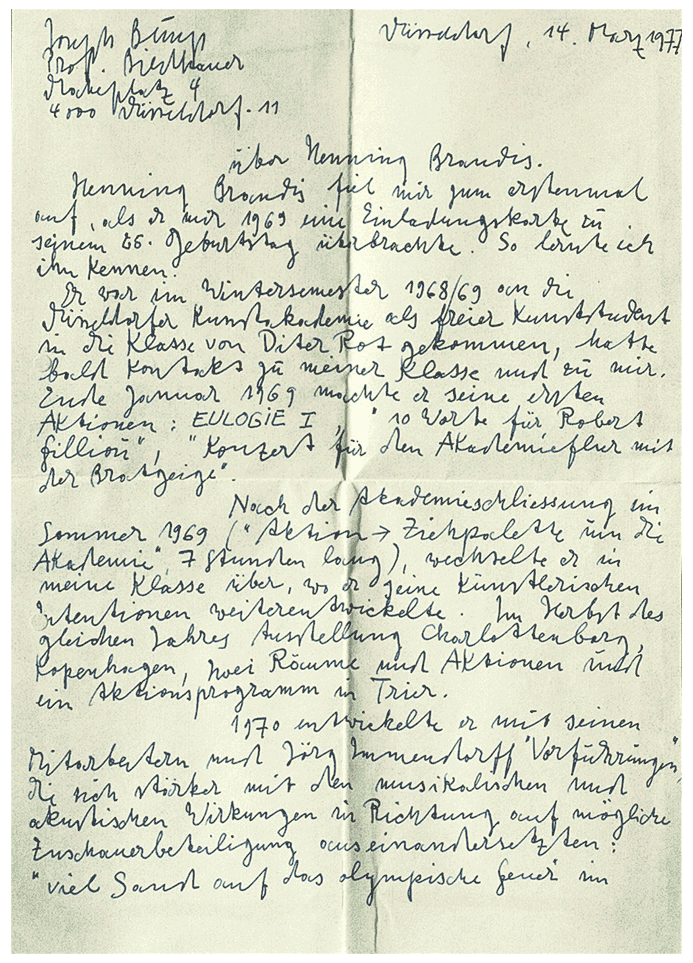 Joseph Beuys
Prof. Bildhauer
Drakeplatz 4
4000 Düsseldorf-11
Düsseldorf, 14. März 1977
über Henning Brandis.
Henning Brandis fiel mir zum erstenmal
auf, als er mir 1969 eine Einladungskarte zu
seinem 26. Geburtstag überbrachte. So lernte ich
ihn kennen.
Er war im Wintersemester 1968/69 an die
Düsseldorfer Kunstakademie als freier Kunststudent
in die Klasse von Diter Rot gekommen, hatte
bald Kontakt zu meiner Klasse und zu mir.
Ende Januar 1969 machte er seine ersten
Aktionen: EULOGIE I, "10 Worte für Robert
Filliou", "Konzert für den Akademieflur mit
der Bratgeige".
Nach der Akademieschliessung im
Sommer 1969 ("Aktion → Ziehpalette um die
Akademie", 7 Stunden lang), wechselte er in
meine Klasse über, wo er seine künstlerischen
Intentionen weiterentwickelte. Im Herbst des
gleichen Jahres Ausstellung Charlottenborg,
Kopenhagen, zwei Räume und Aktionen und
ein Aktionsprogramm in Trier.
1970 entwickelte er mit seinen
Mitarbeitern und Jörg Immendorff "Vorführungen",
die sich stärker mit den musikalischen und
akustischen Wirkungen in Richtung auf mögliche
Zuschauerbeteiligung auseinandersetzten:
"viel Sand auf das olympische Feuer" im